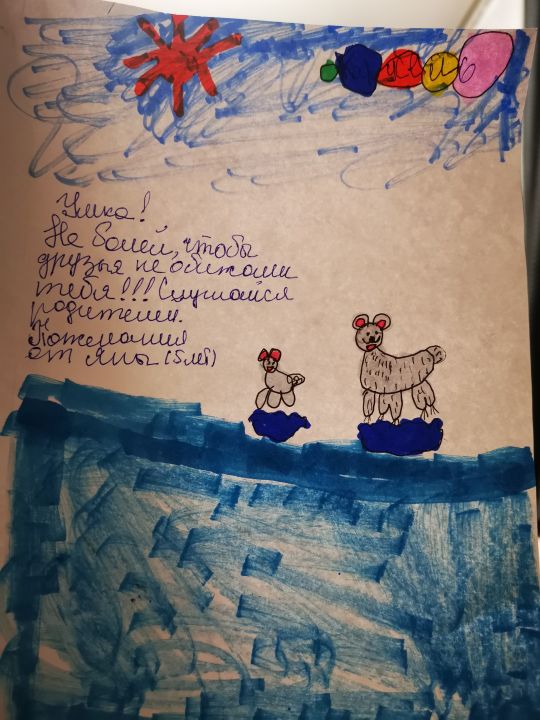 Умка!
Не болей, чтобы
друзья не обижали
тебя!!! Слушайся
родителей.
Пожелания
от яны (5 лет)